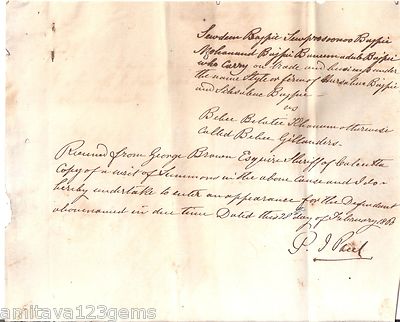 Sewdeen Bajpie Sewprosonoo Bajpie
Mohanund Bajpie Bunwareeolab Bajpie
who carry on trade and business under
the name style or firm of Hursabuc Bajpie
and Sitabuc Bajpie
vs
Bebee Belatee Khanum otherwise
called Bebee Gillanders.
Received from George Brown Esquire Sheriff of Calcutta
Copy of a writ of Summons in the above Cause and I do
hereby undertake to enter an appearance for the Defendant
abovenamed in due time Dated this 28th day of February
P. J. Paul
© amitava123gems